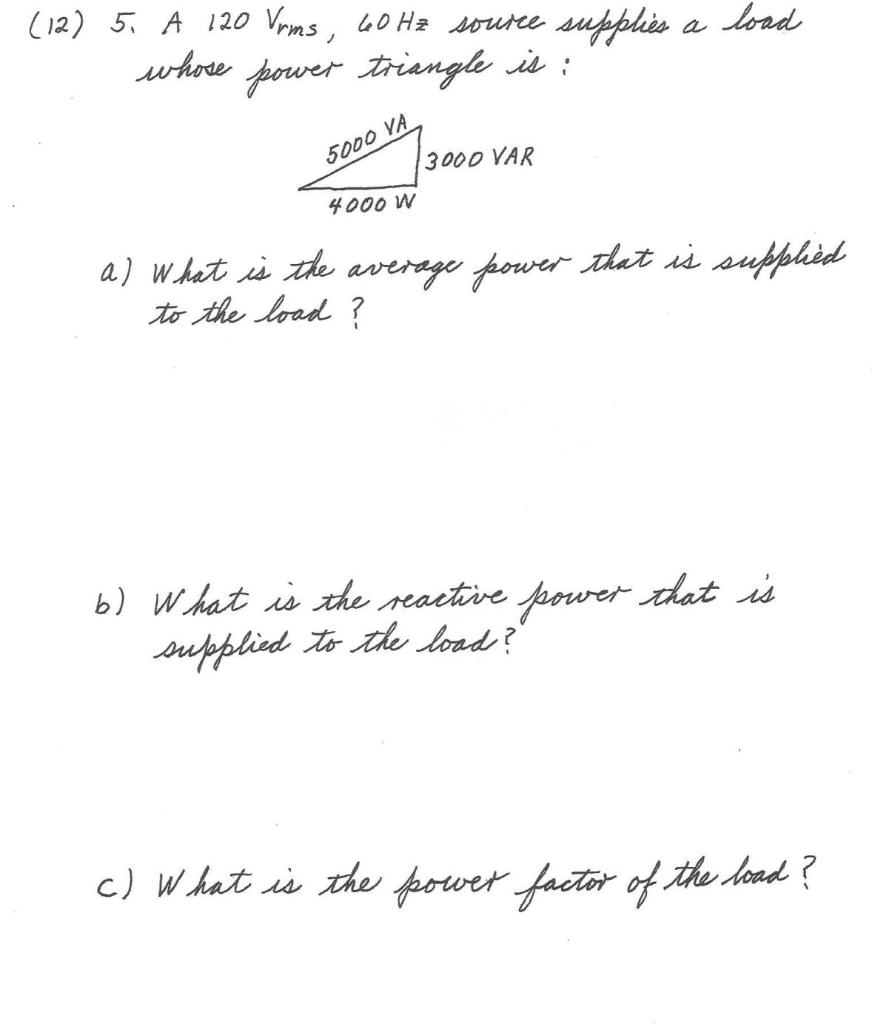 (12) 5. A 120 Vrms, 60 Hz source supplies a load
whose power triangle is :
5000 VA
3000 VAR
4000 W
a) What is the average power that is supplied
to the load ?
b) What is the reactive power that is
supplied to the load?
c) What is the power factor of the load ?